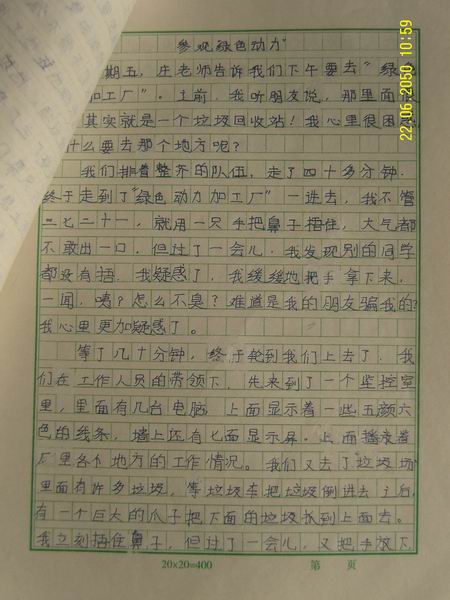 参观绿色动力"
期五，庄老师告诉我们下午要去"绿
加工厂"。去前，我听朋友说，那里面
其实就是一个垃圾回收站！我心里很困惑
什么要去那个地方呢？
我们排着整齐的队伍，走了四十多分钟，
终于走到了"绿色动力加工厂"一进去，我不管
三七二十一，就用一只手把鼻子捂住，大气都
不敢出一口，但过了一会儿，我发现别的同学
都没有捂，我疑惑了，我缓缓地把手拿下来，
一闻，咦？怎么不臭？难道是我的朋友骗我的？
我心里更加疑惑了。
等了几十分钟，终于轮到我们上去了，我
们在工作人员的带领下，先来到了一个监控室
里，里面有几台电脑，上面显示着一些五颜六
色的线条，墙上还有七面显示屏，上面播放着
厂里各个地方的工作情况。我们又去了垃圾场
里面有许多垃圾，等垃圾车把垃圾倒进去之后，
有一个巨大的爪子把下面的垃圾抓到上面去。
我立刻捂住鼻子，但过了一会儿，又把手放下，
20×20=400 第 页
22.06.2050 10:59